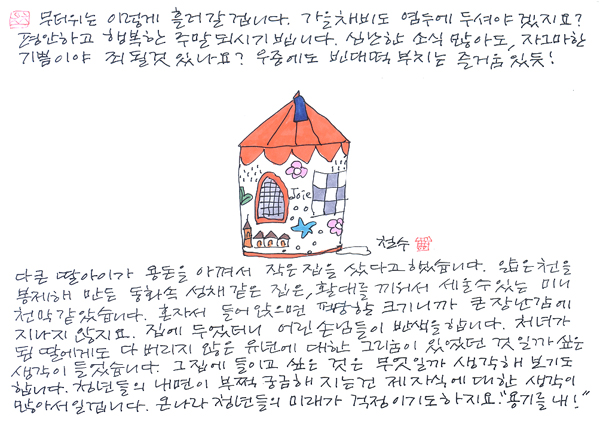 무더위는 이렇게 흘러갈 겁니다. 가을채비도 염두에 두셔야겠지요?
평안하고 행복한 주말 되시기 빕니다. 심난한 소식 많아도, 자그마한
기쁨이야 죄 될것 있나요? 우중에도 빈대떡 부치는 즐거움 있듯!
Joie
철수
다큰 딸아이가 용돈을 아껴서 작은 집을 샀다고 했습니다. 얇은 천을
봉제해 만든 동화속 성채 같은 집은, 활대를 끼워서 세울수 있는 미니
천막 같았습니다. 혼자서 들어앉으면 편안할 크기니까 큰 장난감에
지나지 않지요. 집에 두었더니 어린 손님들이 반색을 합니다. 처녀가
된 딸에게도 다 버리지 않은 유년에 대한 그리움이 있었던 것일까 싶은
생각이 들었습니다. 그 집에 들이고 싶은 것은 무엇일까 생각해 보기도
합니다. 청년들의 내면이 부쩍 궁금해 지는건 제 자식에 대한 생각이
많아서일겁니다. 온나라 청년들의 미래가 걱정이기도 하지요. "용기를 내!"